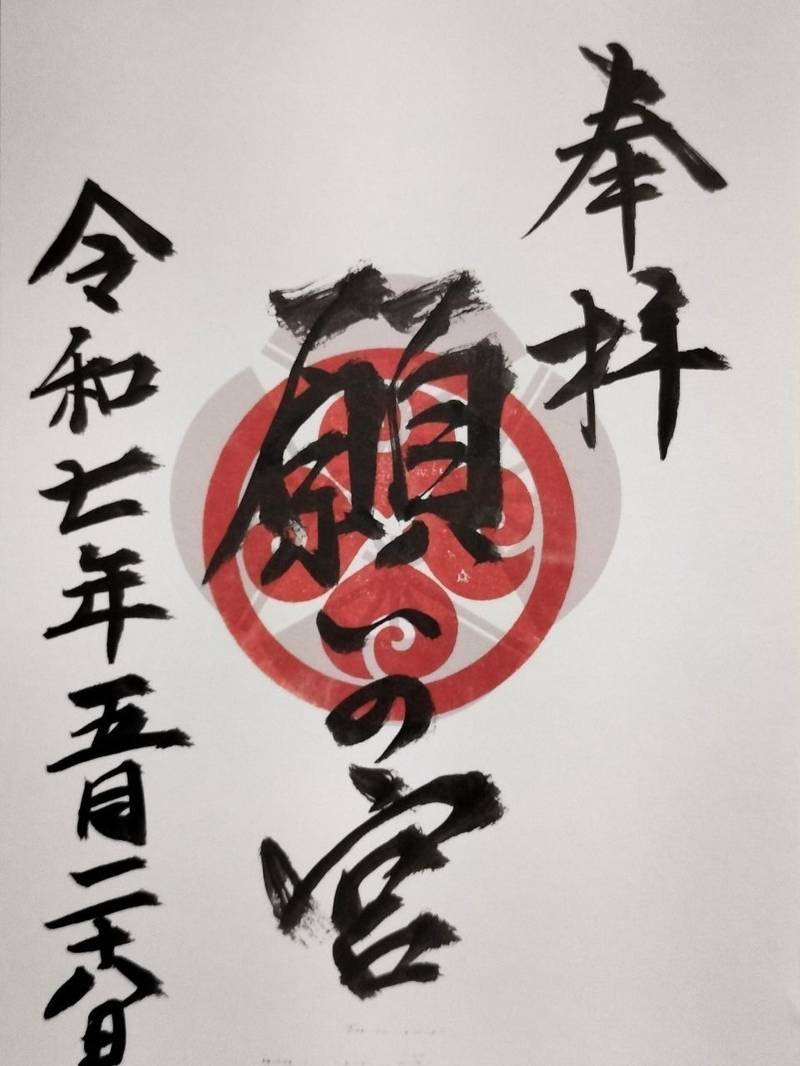 奉拝
願いの宮
令和七年五月二十八日